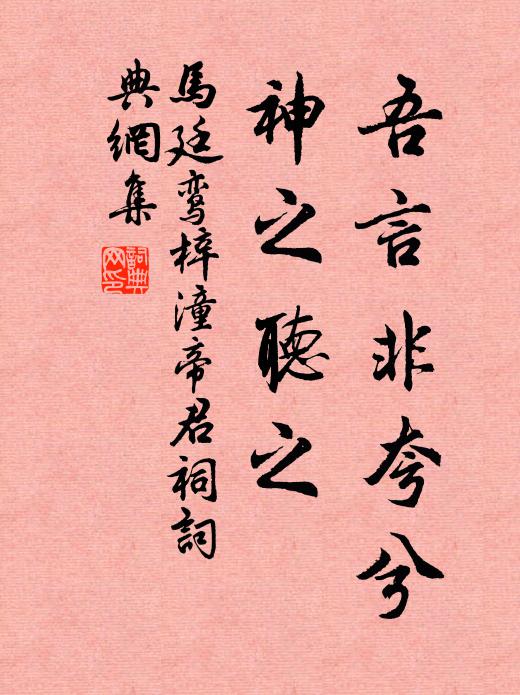 吾言非夸兮
神之聽之
馬廷鸾梓潼帝君祠詞
典網集
詞典
网印